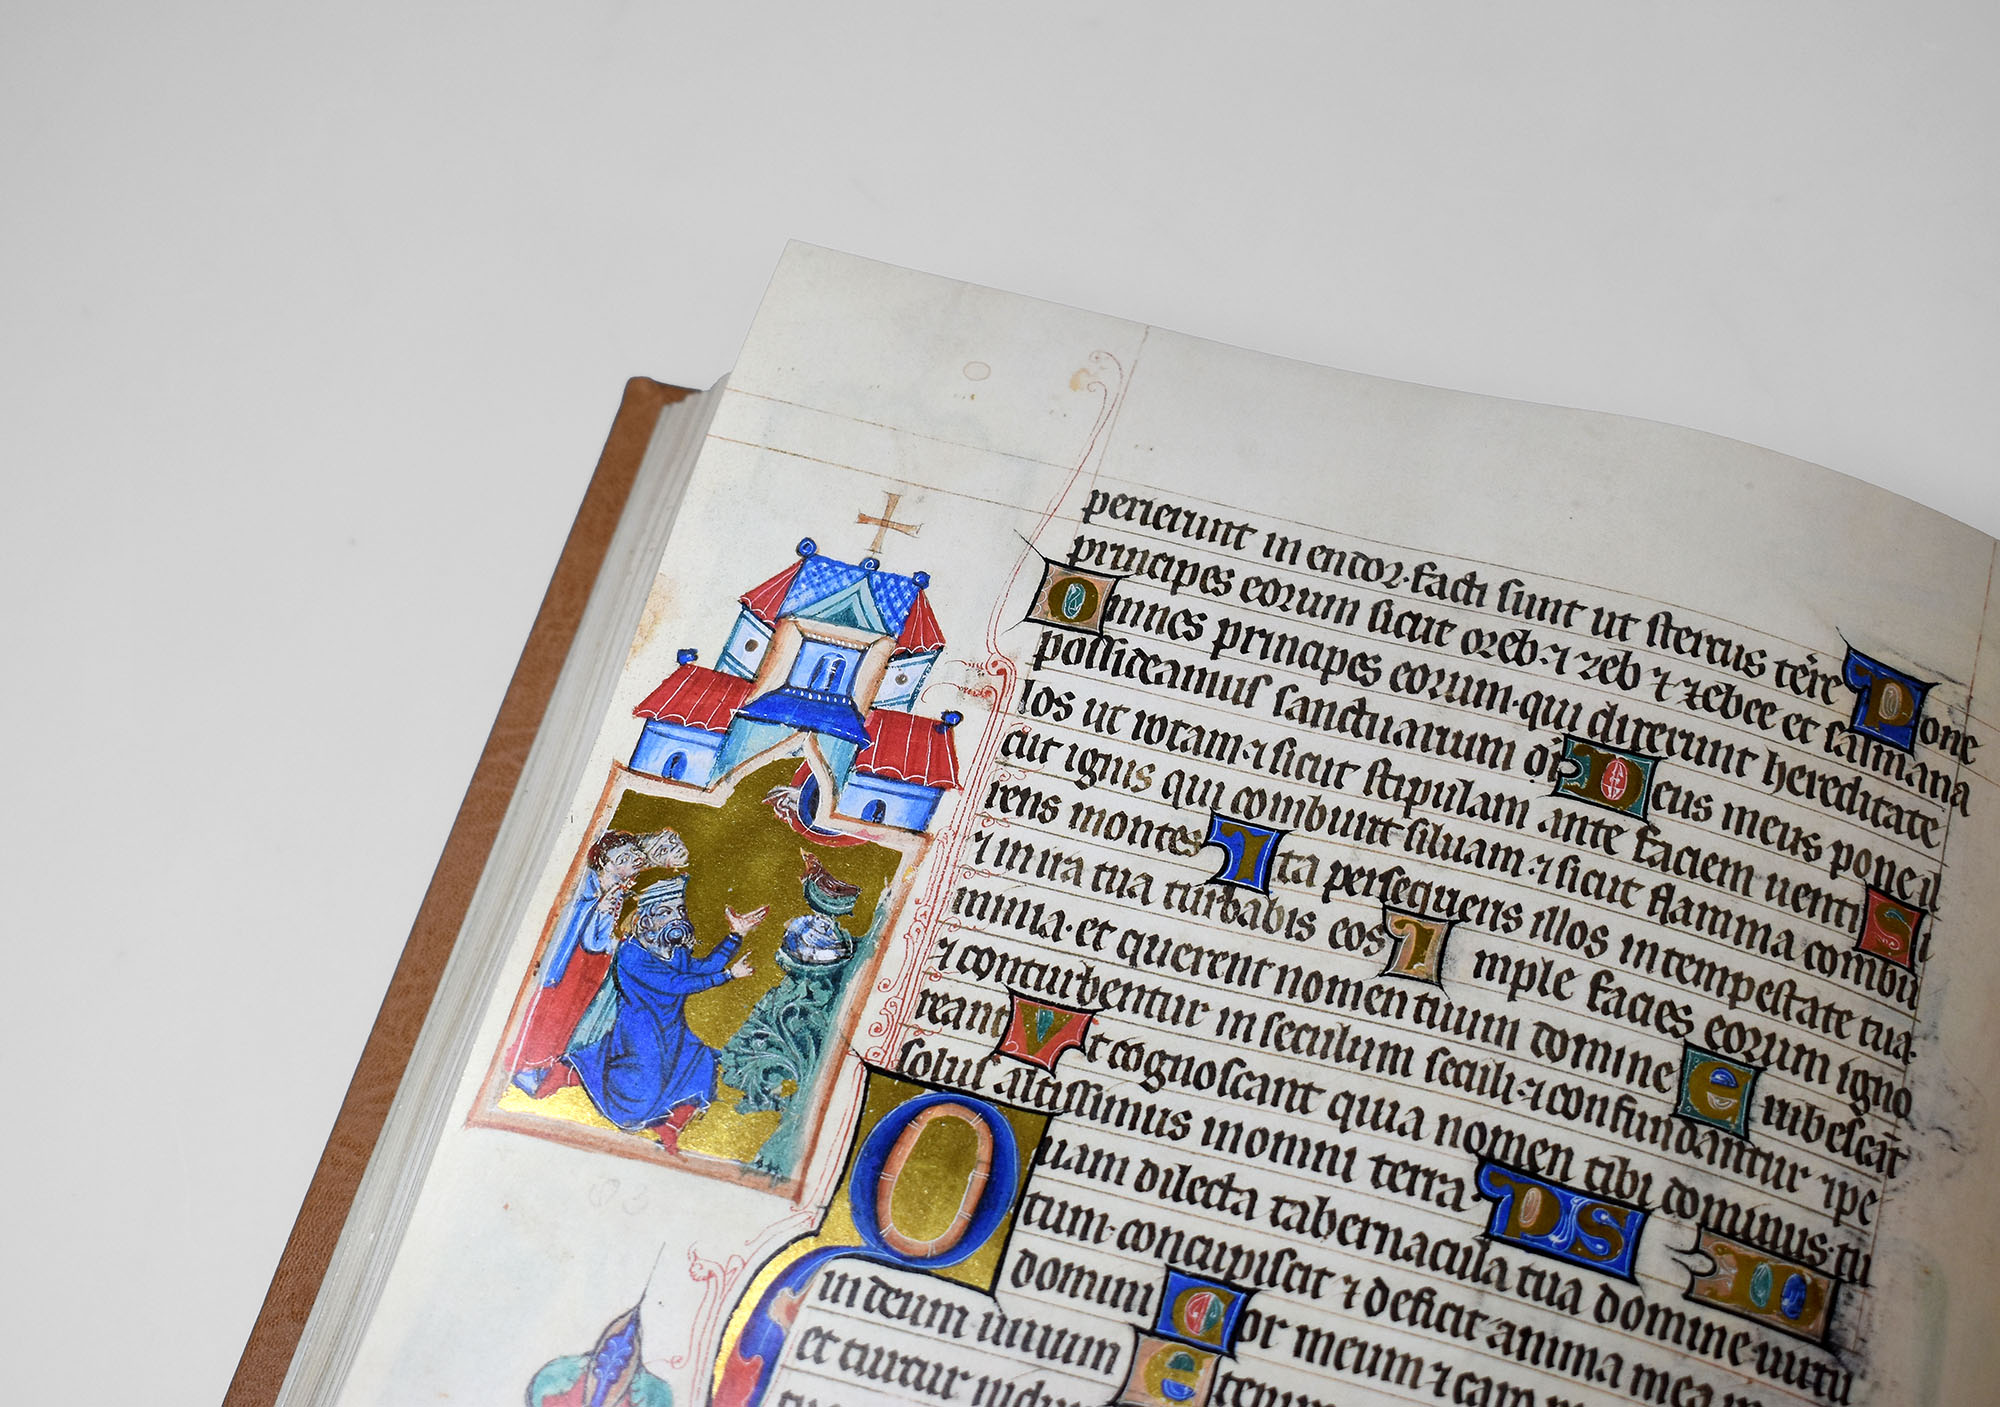 perierunt in endor. facti sunt ut stercus tēre Pone
principes eorum sicut oreb. ⁊ zeb ⁊ zebee et salmana
Omnes principes eorum. qui dixerunt hereditate
possideamus sanctuarium dī Deus meus pone il
los ut rotam. ⁊ sicut stipulam ante faciem uenti Si
cut ignis qui comburit siluam. ⁊ sicut flamma combu
rens montes Ita persequeris illos in tempestate tua.
⁊ in ira tua turbabis eos Imple facies eorum igno
minia. et querent nomen tuum domine Erubescāt
⁊ conturbentur in seculum seculi. ⁊ confundantur ⁊ pe
reant Vt cognoscant quia nomen tibi dominus. tu
solus altissimus in omni terra. PS
Quam dilecta tabernacula tua domine uirtu
tum. concupiscit ⁊ deficit anima mea
domini Cor meum ⁊ caro
in deum uiuum
et turtur